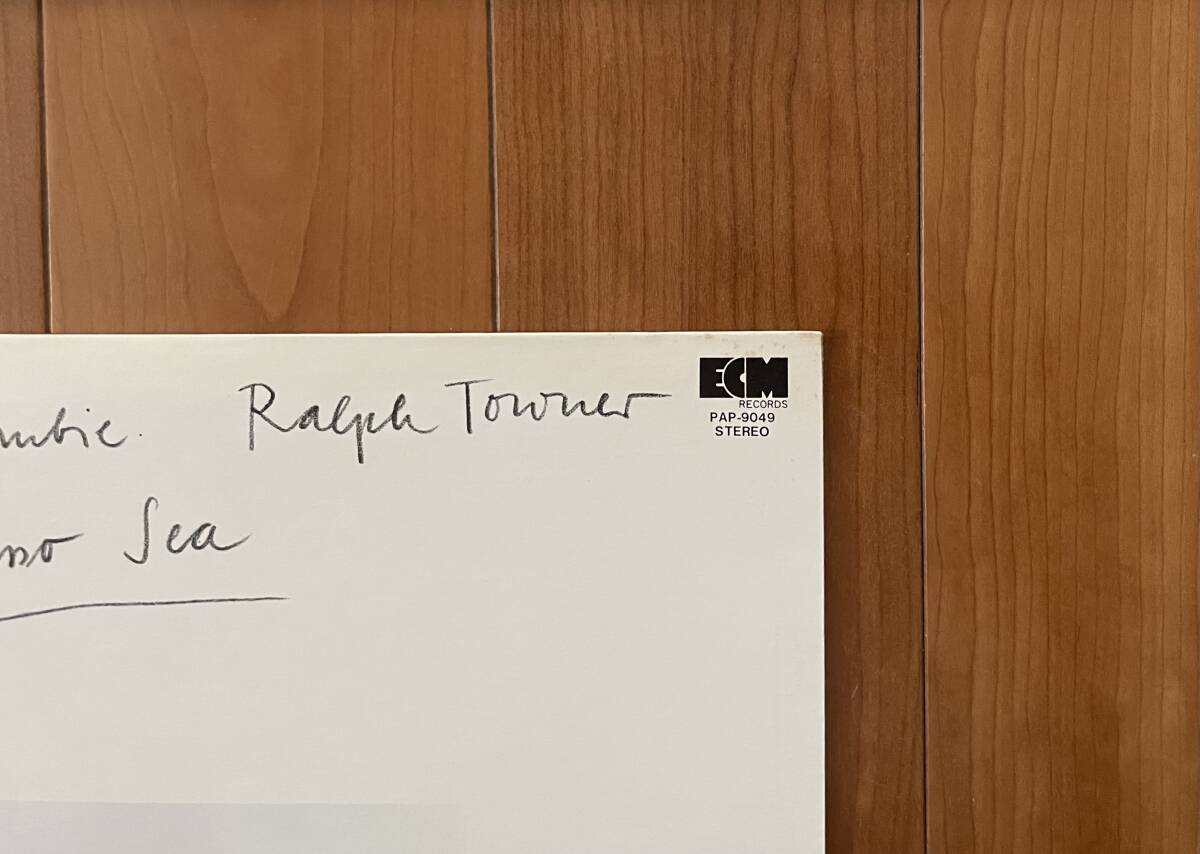 mbie. Ralph Towner
sso Sea
ECM
RECORDS
PAP-9049
STEREO